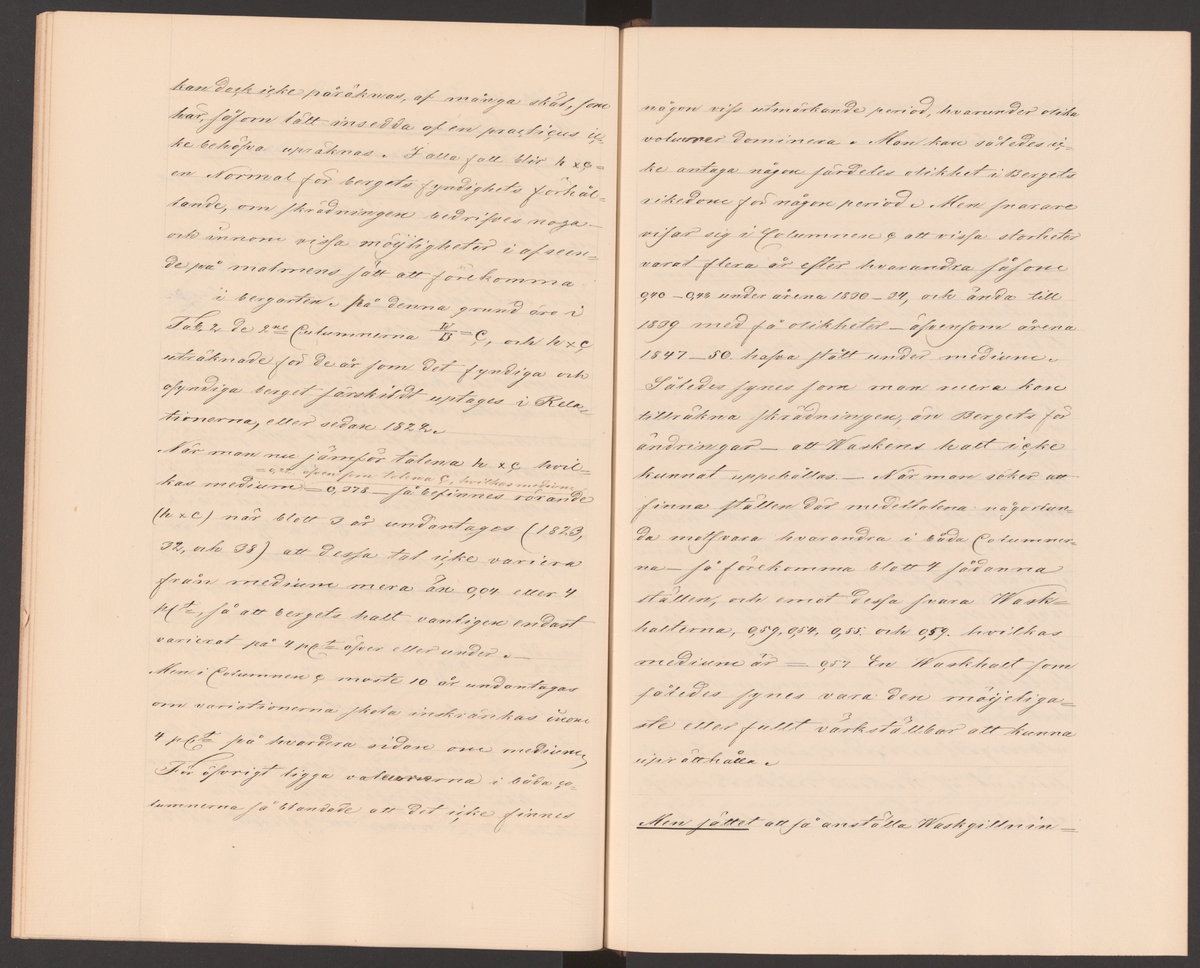 kan dock icke påräknas, af många skäl, som
här, såsom lätt insedda af en practicus ic-
ke behöfva upräknas. I alla fall blir h×ç=
en Normal för bergets fyndighets förhål-
lande, om skrädningen bedrifves noga—
och innom vissa möyligheter i afseen-
de på malmens sätt att förekomma
i bergarten. På denna grund äro i
Tab. 2 de 2ne Columnerna W/B = ç, och h×ç
uträknade för de år som det fyndiga och
ofyndiga berget särskildt uptages i Rela-
tionerna, eller sedan 1822.
När man nu jämför talena h×ç hvil-
äfven som talena ç, hvilkas medium
kas medium = 0,378 — så befinnes rörande
(h×ç) när blott 3 år undantages (1823,
32, och 38) att dessa tal icke variera
från medium mera än 0,04 eller 4
pCt, så att bergets halt vanligen endast
varierat på 4 pCt öfver eller under.—
Men i Columnen ç moste 10 år undantagas
om variationerna skola inskränkas inom
4 pCt på hvardera sidan om medium,
För öfvrigt ligga valeurerna i båda co-
lumnerna så blandade att det icke finnes
någon viss utmärkande period, hvarunder olika
valeurer dominera. Man kan således ic-
ke antaga någon särdeles olikhet i Bergets
rikedom för någon period. Men snarare
visar sig i Columnen ç att vissa storheter
varat flera år efter hvarandra såsom
0,40 — 0,48 under årena 1830 — 34, och ända till
1839 med få olikheter — äfvensom årena
1847 — 50. hafva stått under medium.
Således synes som man mera kan
tillräkna skrädningen, än Bergets för
ändringar — att Waskens halt icke
kunnat uppehållas. — När man söker att
finna ställen där medeltalena någorlun-
da motsvara hvarandra i båda Columner-
na — så förekomma blott 4 sådanna
ställen, och emot dessa svara Wask-
halterna, 0,59, 0,54, 0,55 och 0,59. hvilkas
medium är = 0,57 En Waskhalt som
således synes vara den möyeliga-
ste eller fullt värkställbar att kunna
uprätthålla.
Men sättet att så anställa Waskgillnin-